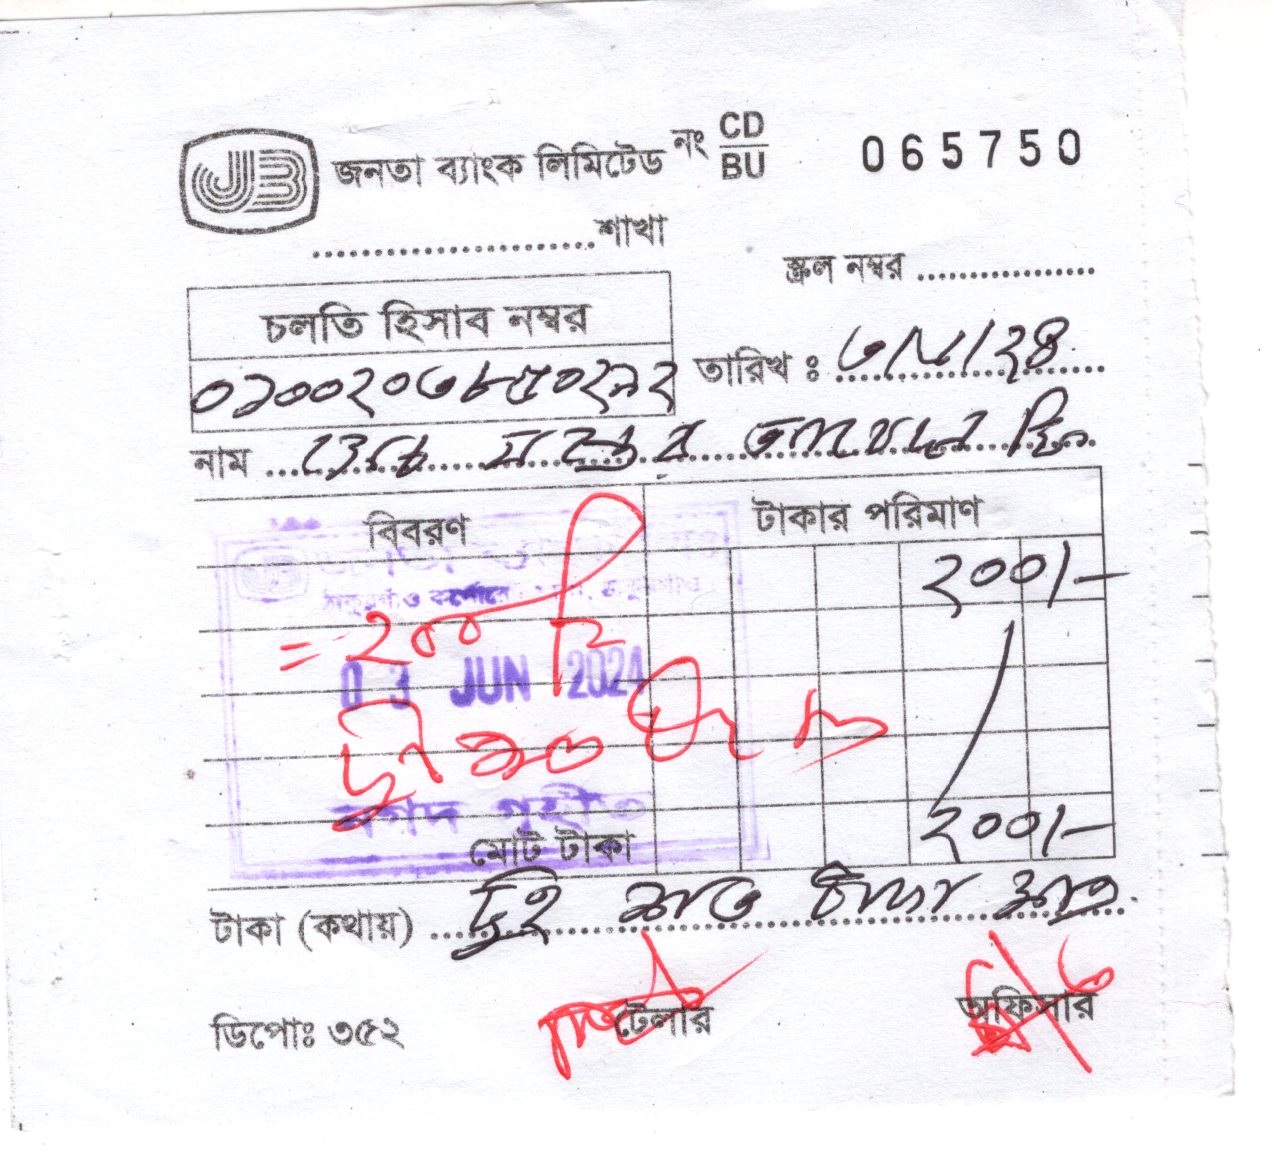 JB জনতা ব্যাংক লিমিটেড নং CD/BU 065750
....................শাখা
স্ক্রল নম্বর ................
চলতি হিসাব নম্বর
তারিখ ঃ ৩/৬/২৪
০১০০২০৩৮৫০২৯২
নাম
বিবরণ টাকার পরিমাণ
২০০/-
ঠাকুরগাঁও কর্পোরেট শাখা, ঠাকুরগাঁও
= ২০০/-
03 JUN 2024
নগদ গৃহীত
মোট টাকা ২০০/-
টাকা (কথায়) দুই শত টাকা মাত্র
টেলার অফিসার
ডিপোঃ ৩৫২